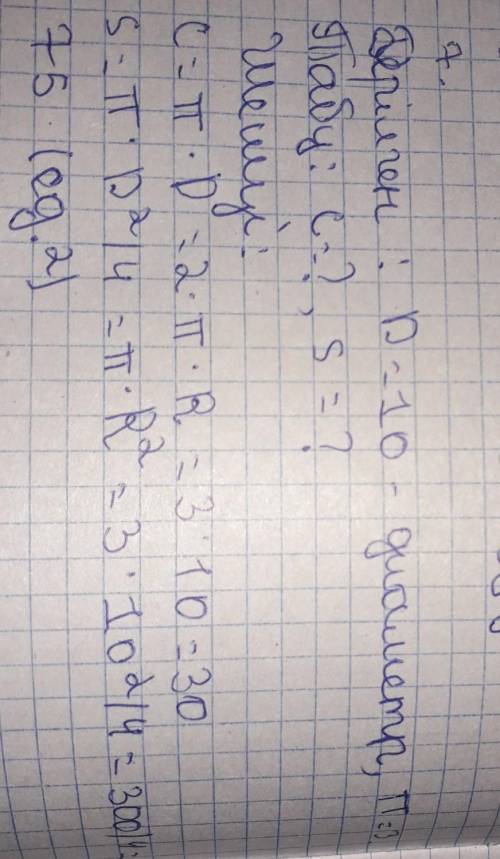 7.
Берілген: D=10-диаметр, π=3
Табу: C=?, S=?
Шешуі:
C=π·D=2·π·R=3·10=30
S=π·D²/4=π·R²=3·10²/4=300/4=
75·(ед.2)